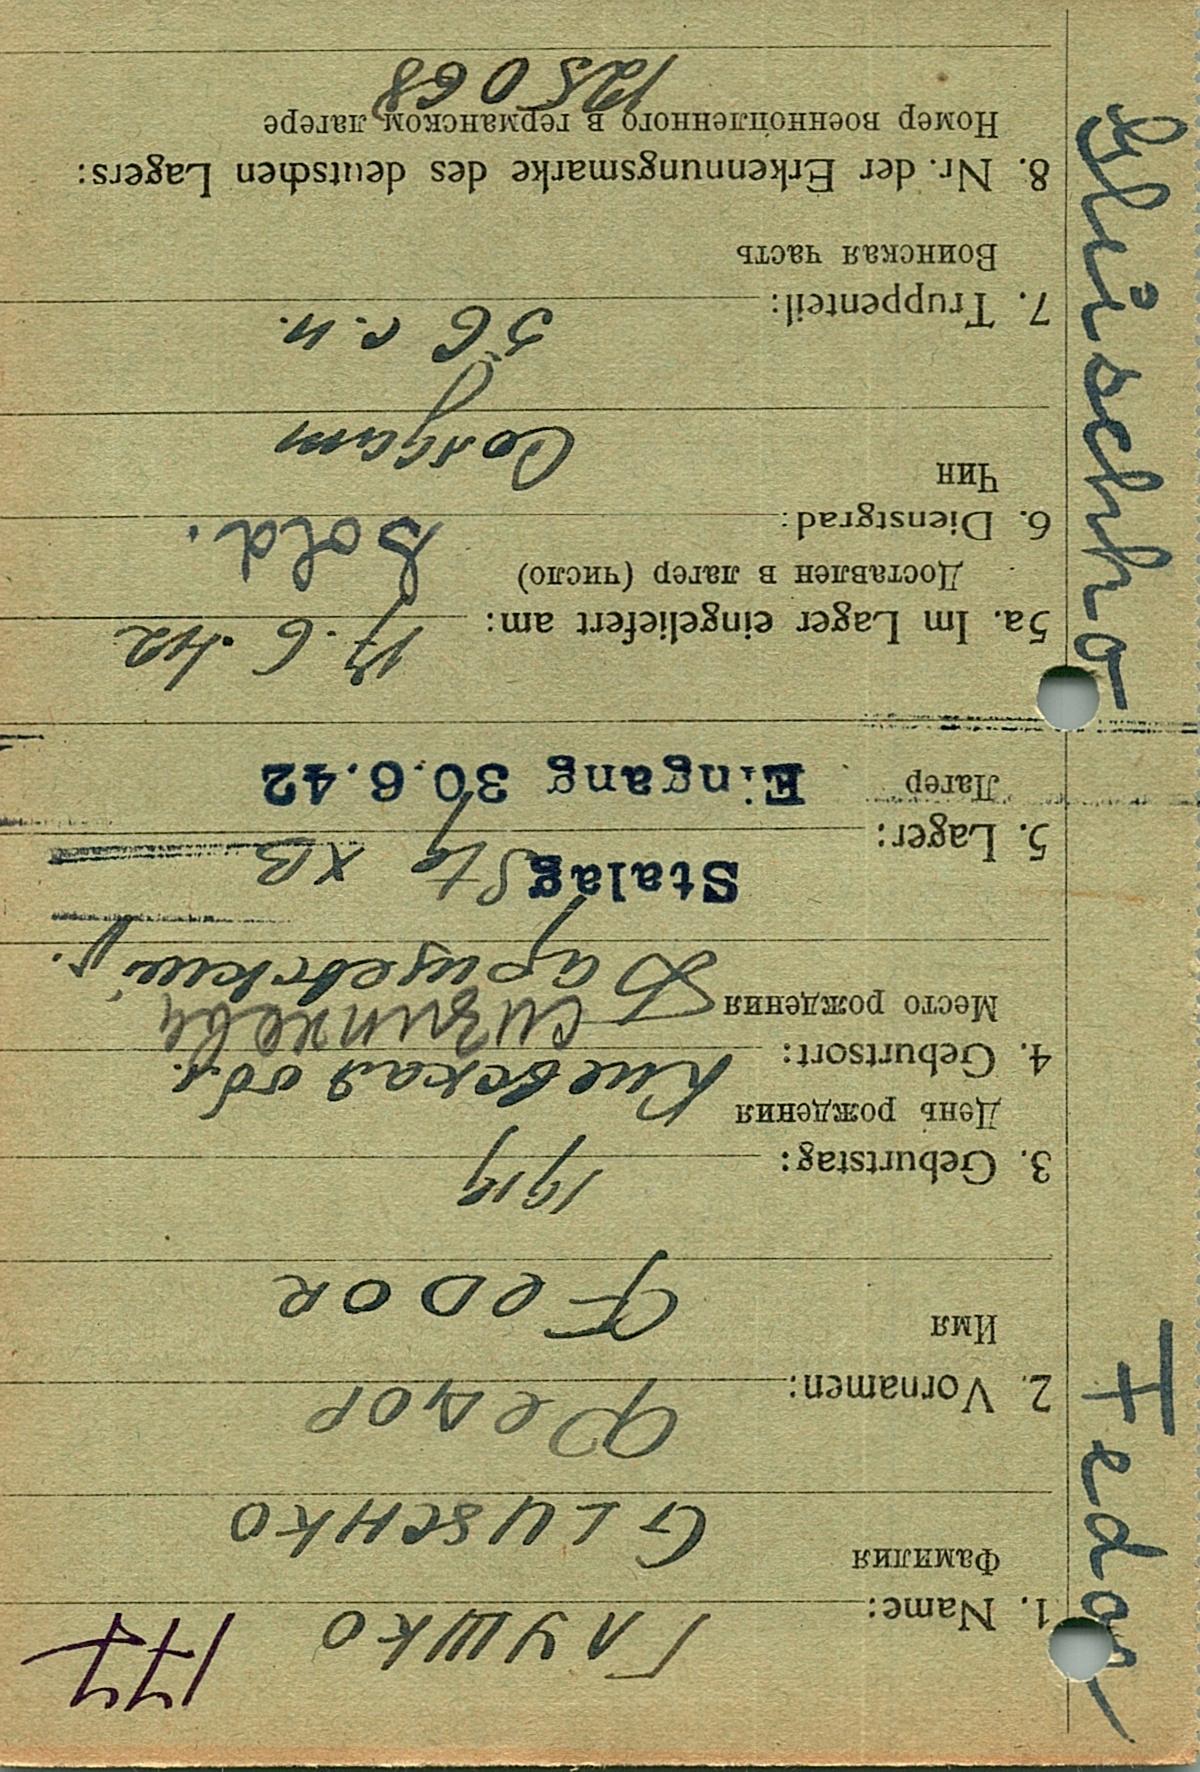 177
1. Name: ГЛУШКО
Фамилия
GLUSCHKO
2. Vornamen: Федор
Имя
FEDOR
3. Geburtstag: 1919
День рождения
4. Geburtsort: Киевская обл.
Место рождения
Барышевский р.
5. Lager: Stalag Stg XB
Лагер
Eingang 30.6.42
5a. Im Lager eingeliefert am: 17.6.42
Доставлен в лагер (число)
6. Dienstgrad: Sold.
Чин
Солдат
7. Truppenteil: 56 с.п.
Воинская часть
8. Nr. der Erkennungsmarke des deutschen Lagers:
Номер военнопленного в германском лагере
125068
Fedor
Gluschko